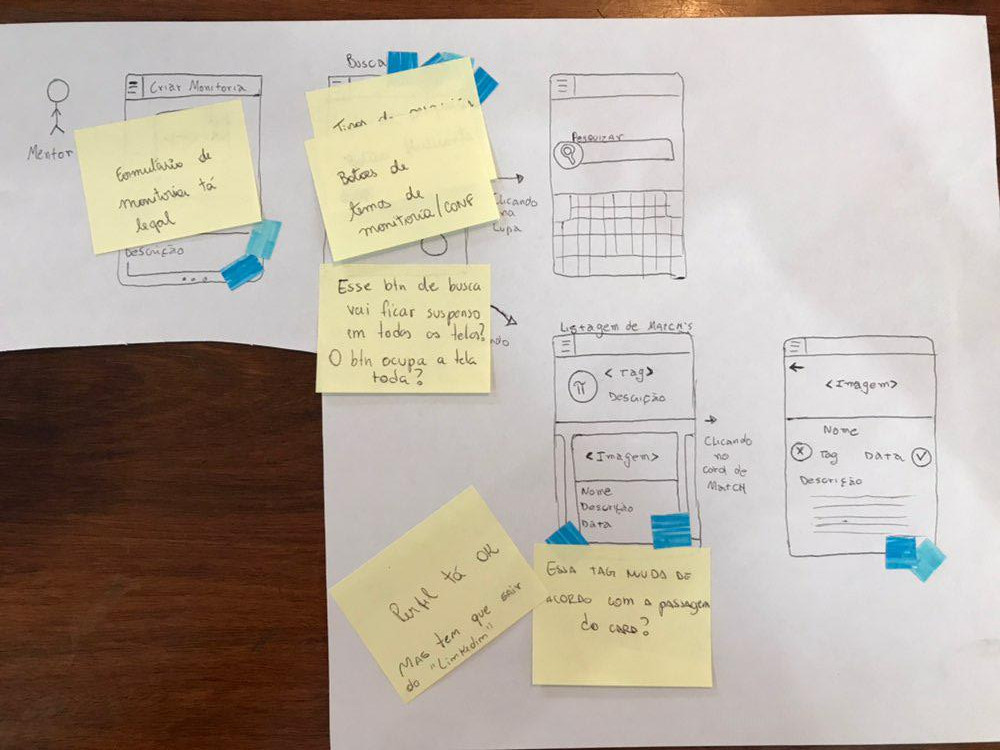 Mentor
Criar Monitoria
Formulário de
monitoria tá
legal
Descrição
Busca
Tipos de
Botões de
temas de
monitoria/CONF
Clicando
na
Lupa
Pesquizar
Esse btn de busca
vai ficar suspenso
em todas as telas?
O btn ocupa a tela
toda?
ndo
Listagem de MatcH's
<Tag>
Descrição
<Imagem>
Nome
Descrição
Data
Clicando
no
card de
MatcH
<Imagem>
Nome
Tag Data
Descrição
Perfil tá OK
Mas tem que sair
do "Linkedin"
ESSA TAG MUDA DE
ACORDO COM A PASSAGEM
DO CARD?